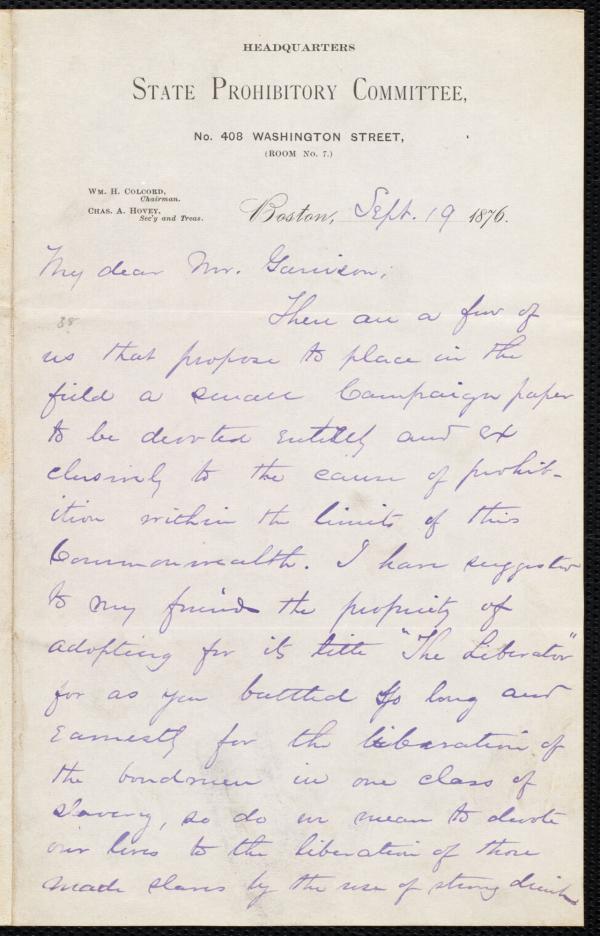 HEADQUARTERS
STATE PROHIBITORY COMMITTEE,
No. 408 WASHINGTON STREET,
(ROOM No. 7.)
WM. H. COLCORD,
Chairman.
CHAS. A. HOVEY,
Sec'y and Treas.
Boston, Sept. 19 1876.
My dear Mr. Garrison;
There are a few of
38
us that propose to place in the
field a small Campaign paper
to be devoted entirely and ex
clusively to the cause of prohib-
ition within the limits of this
Commonwealth. I have suggested
to my friends the propriety of
adopting for its title "The Liberator"
for as you battled so long and
earnestly for the liberation of
the bondmen in one class of
slavery, so do we mean to devote
our lives to the liberation of those
made slaves by the use of strong drink